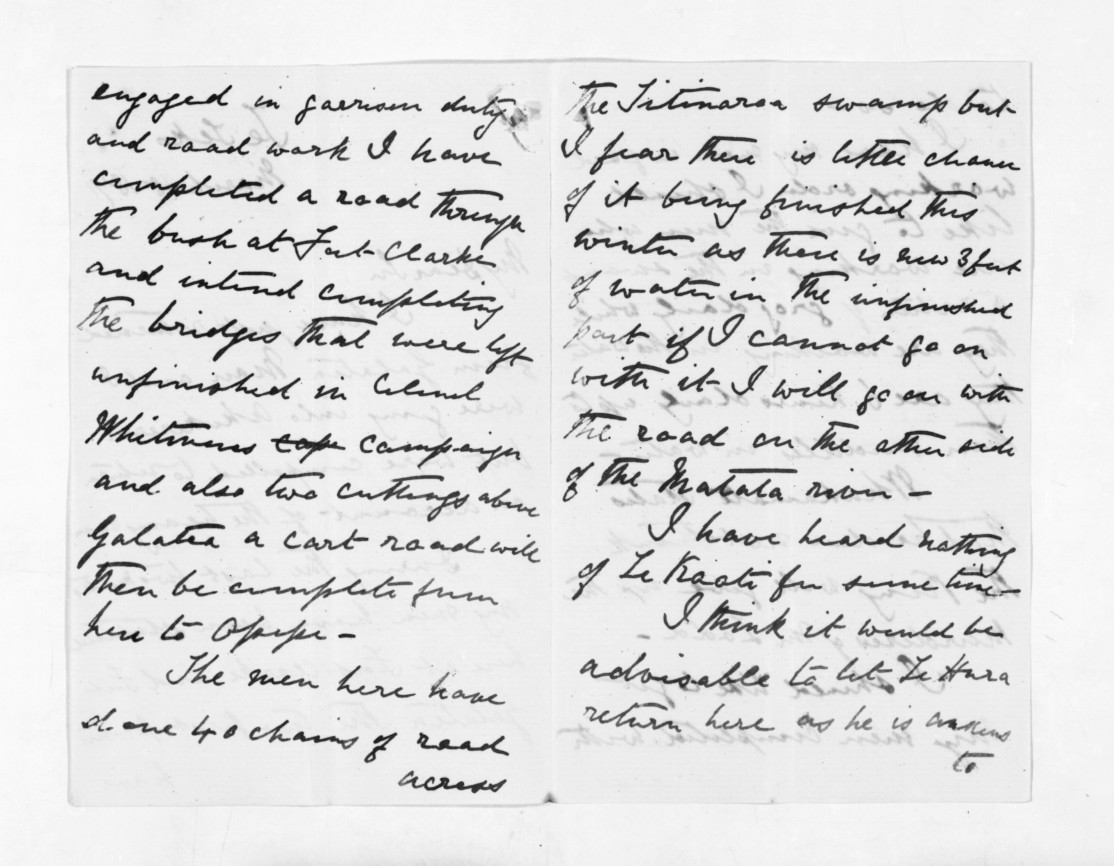 engaged in garrison duty
and road work I have
completed a road through
the bush at Fort Clarke
and intend completing
the bridges that were left
unfinished in Colonel
Whitmores cope campaign
and also two cuttings above
Galatea a cart road will
then be complete from
here to Opepe –
The men here have
done 40 chains of road
across
the Titinaroa swamp but
I fear there is little chance
of it being finished this
winter as there is now 3 feet
of water in the unfinished
part if I cannot go on
with it I will go on with
the road on the other side
of the Matata river –
I have heard nothing
of Te Kooti for some time –
I think it would be
advisable to let Te Hura
return here as he is anxious
to